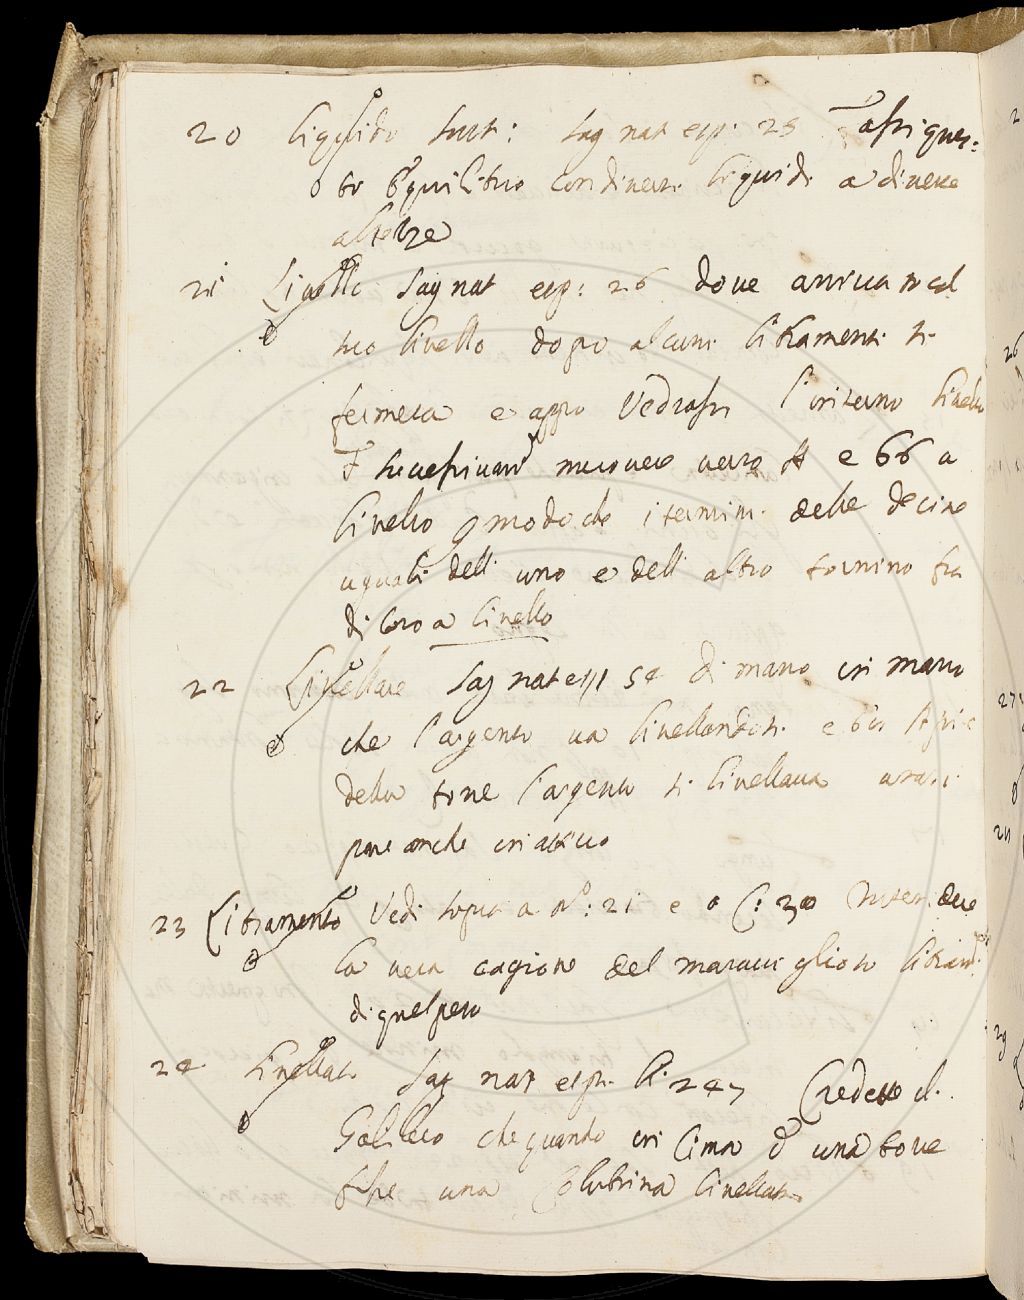 20 Liquido sust: Sag nat esp: 25
equilibrio con diversi liquidi a diverse
altezze
21 Livello Sag nat esp: 26 dove arrivato al
suo livello dopo alcuni libramenti si
fermera e appo Vedrassi l'interno livello
muovere verso A e 66 a
livello modo che i termini delle decine
uguali dell uno e dell altro tornino fra
di loro a livello
22 Livellare Sag nat esp 54 di mano in mano
che l'argento va livellandosi e
della torre l'argento si livellava
pure anche in
23 Libramento Vedi sopra a no: 21 e a C: 30 Intendere
la vera cagione del maraviglioso libram.to
di quel peso
24 Livellata Sag nat esp. C. 247 Credette il
Galileo che quando in cima d una torre
una Colubrina livellata